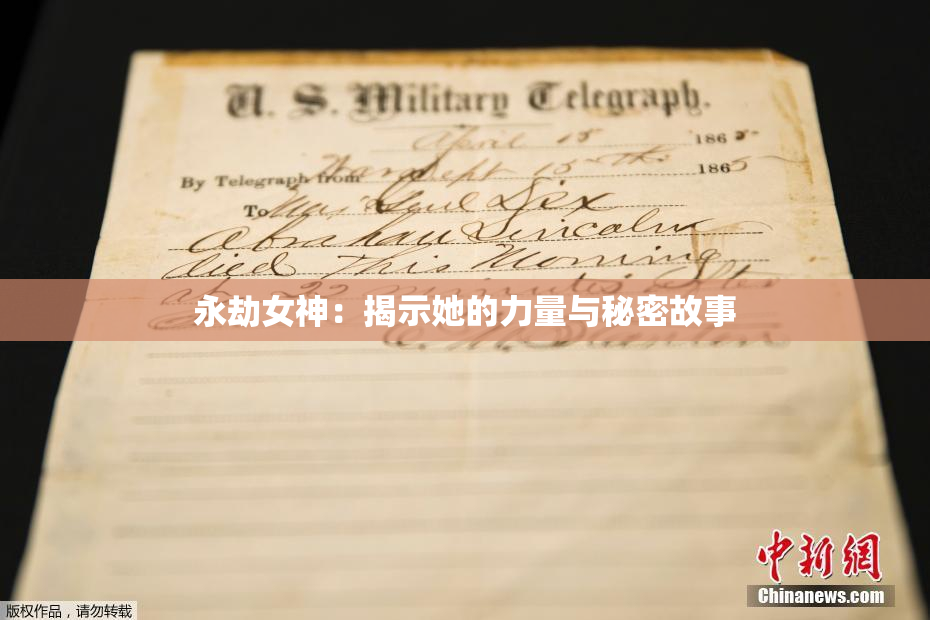 U. S. Military Telegraph.
April 15 1865
By Telegraph from War Dept 15th 1865
To Maj Genl Dix
Abraham Lincoln
died This Morning
at 22 minutes after
永劫女神：揭示她的力量与秘密故事
E. M. Stanton
中新网
Chinanews.com
版权作品，请勿转载